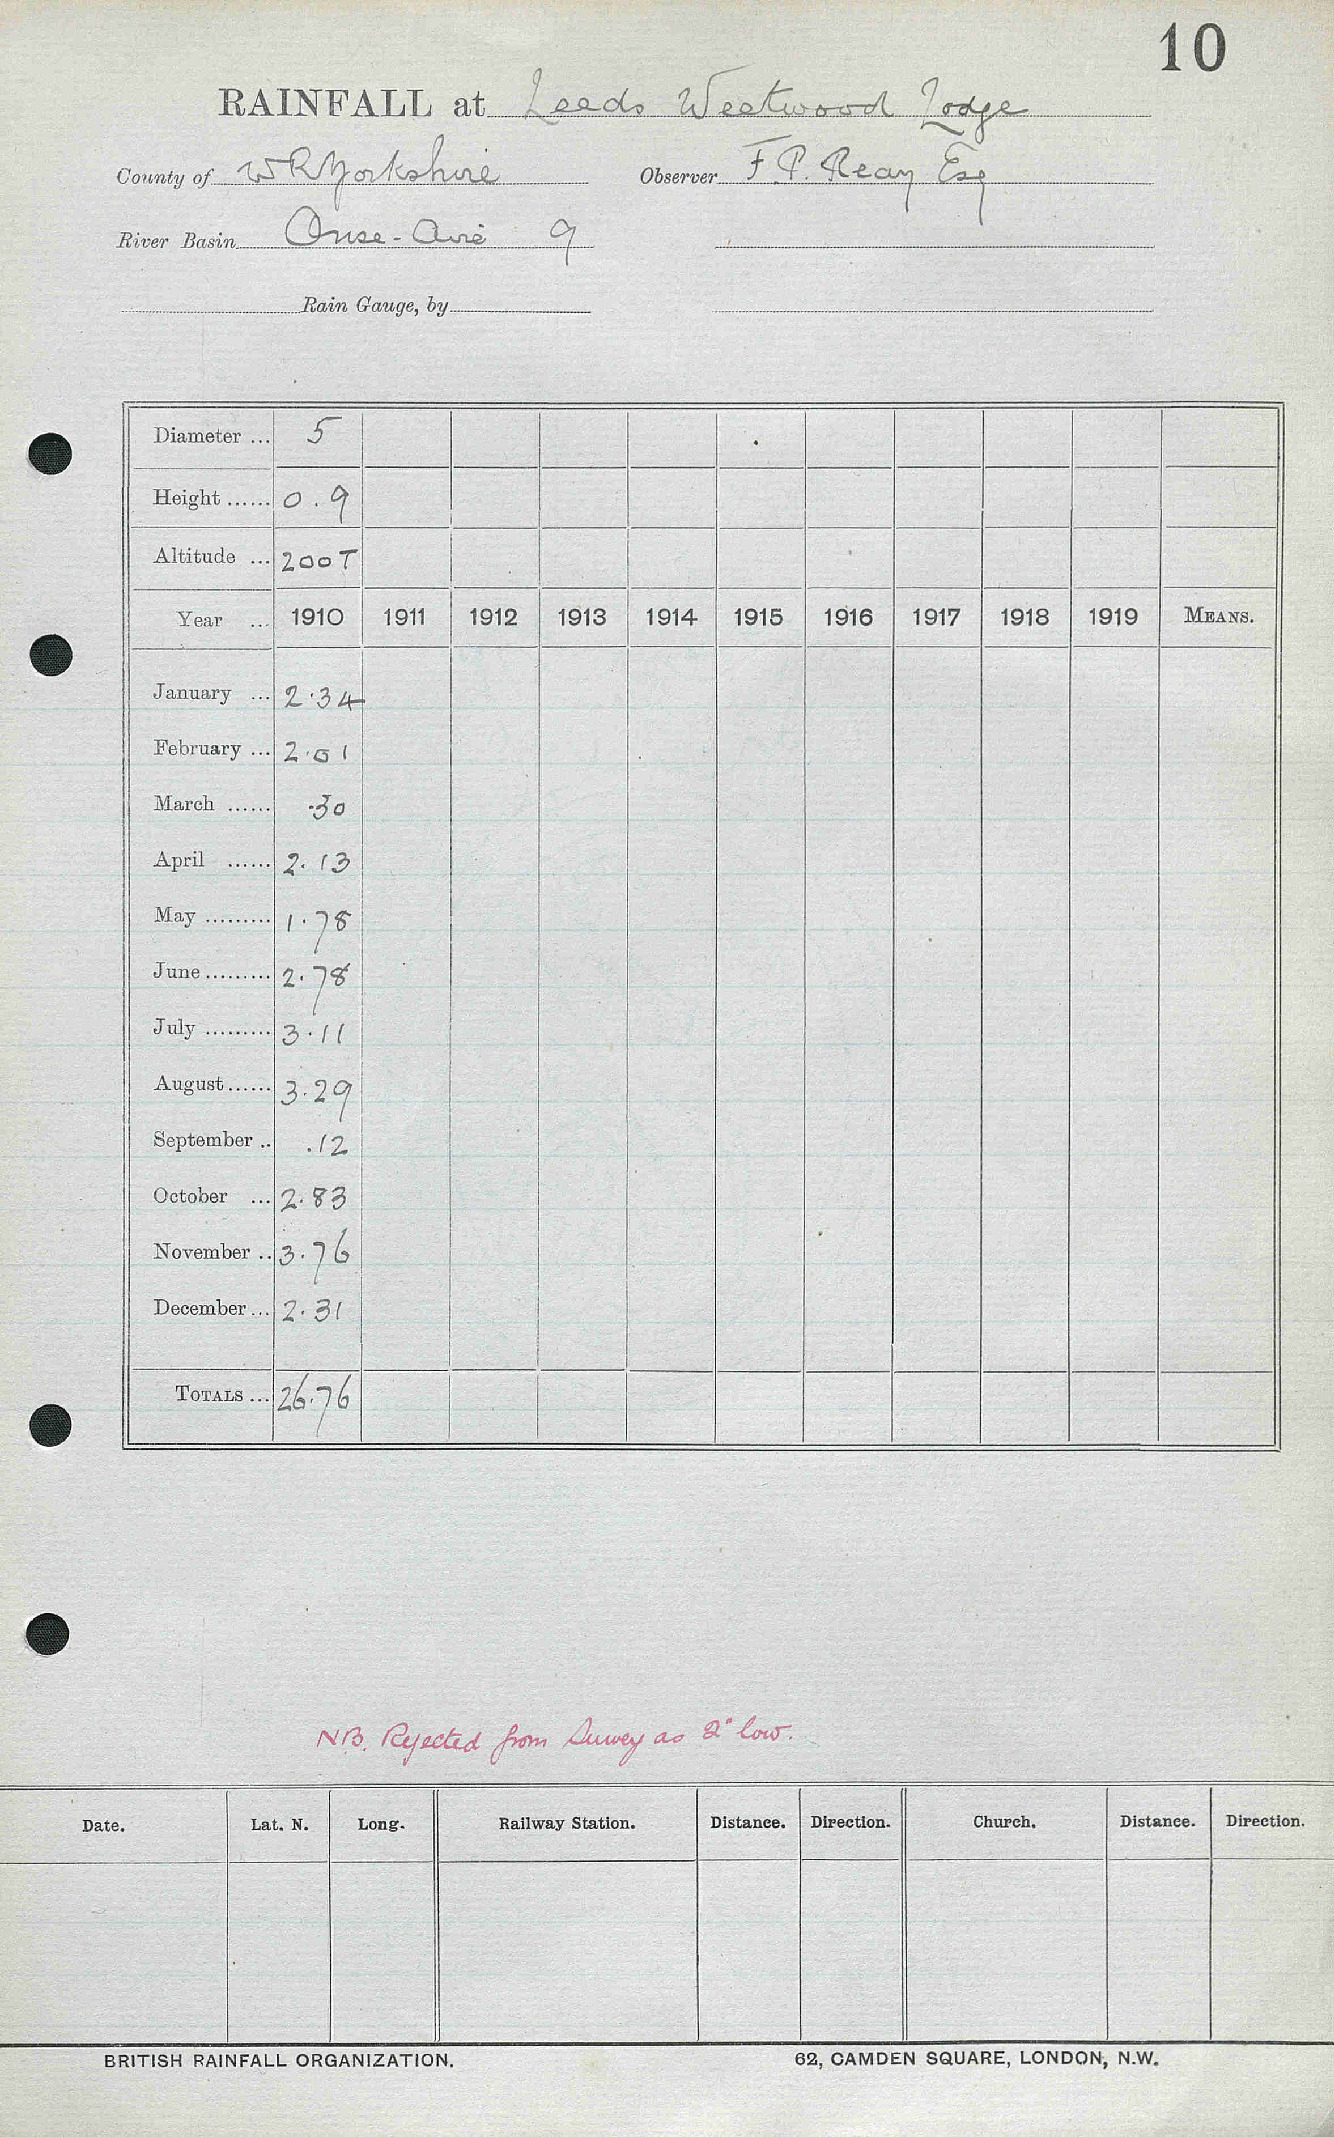 10
RAINFALL at Leeds Weetwood Lodge
County of W R Yorkshire Observer F. P. Reay Esq
River Basin Ouse-Aire 9
Rain Gauge, by
Diameter ... 5
Height ...... 0.9
Altitude ... 200T
Year ... 1910 1911 1912 1913 1914 1915 1916 1917 1918 1919 MEANS.
January ... 2.34
February ... 2.01
March ...... .30
April ...... 2.13
May ......... 1.78
June ......... 2.78
July ......... 3.11
August ...... 3.29
September .. .12
October ... 2.83
November .. 3.76
December ... 2.31
TOTALS ... 26.76
NB. Rejected from Survey as 2" low.
Date. Lat. N. Long. Railway Station. Distance. Direction. Church. Distance. Direction.
BRITISH RAINFALL ORGANIZATION. 62, CAMDEN SQUARE, LONDON, N.W.